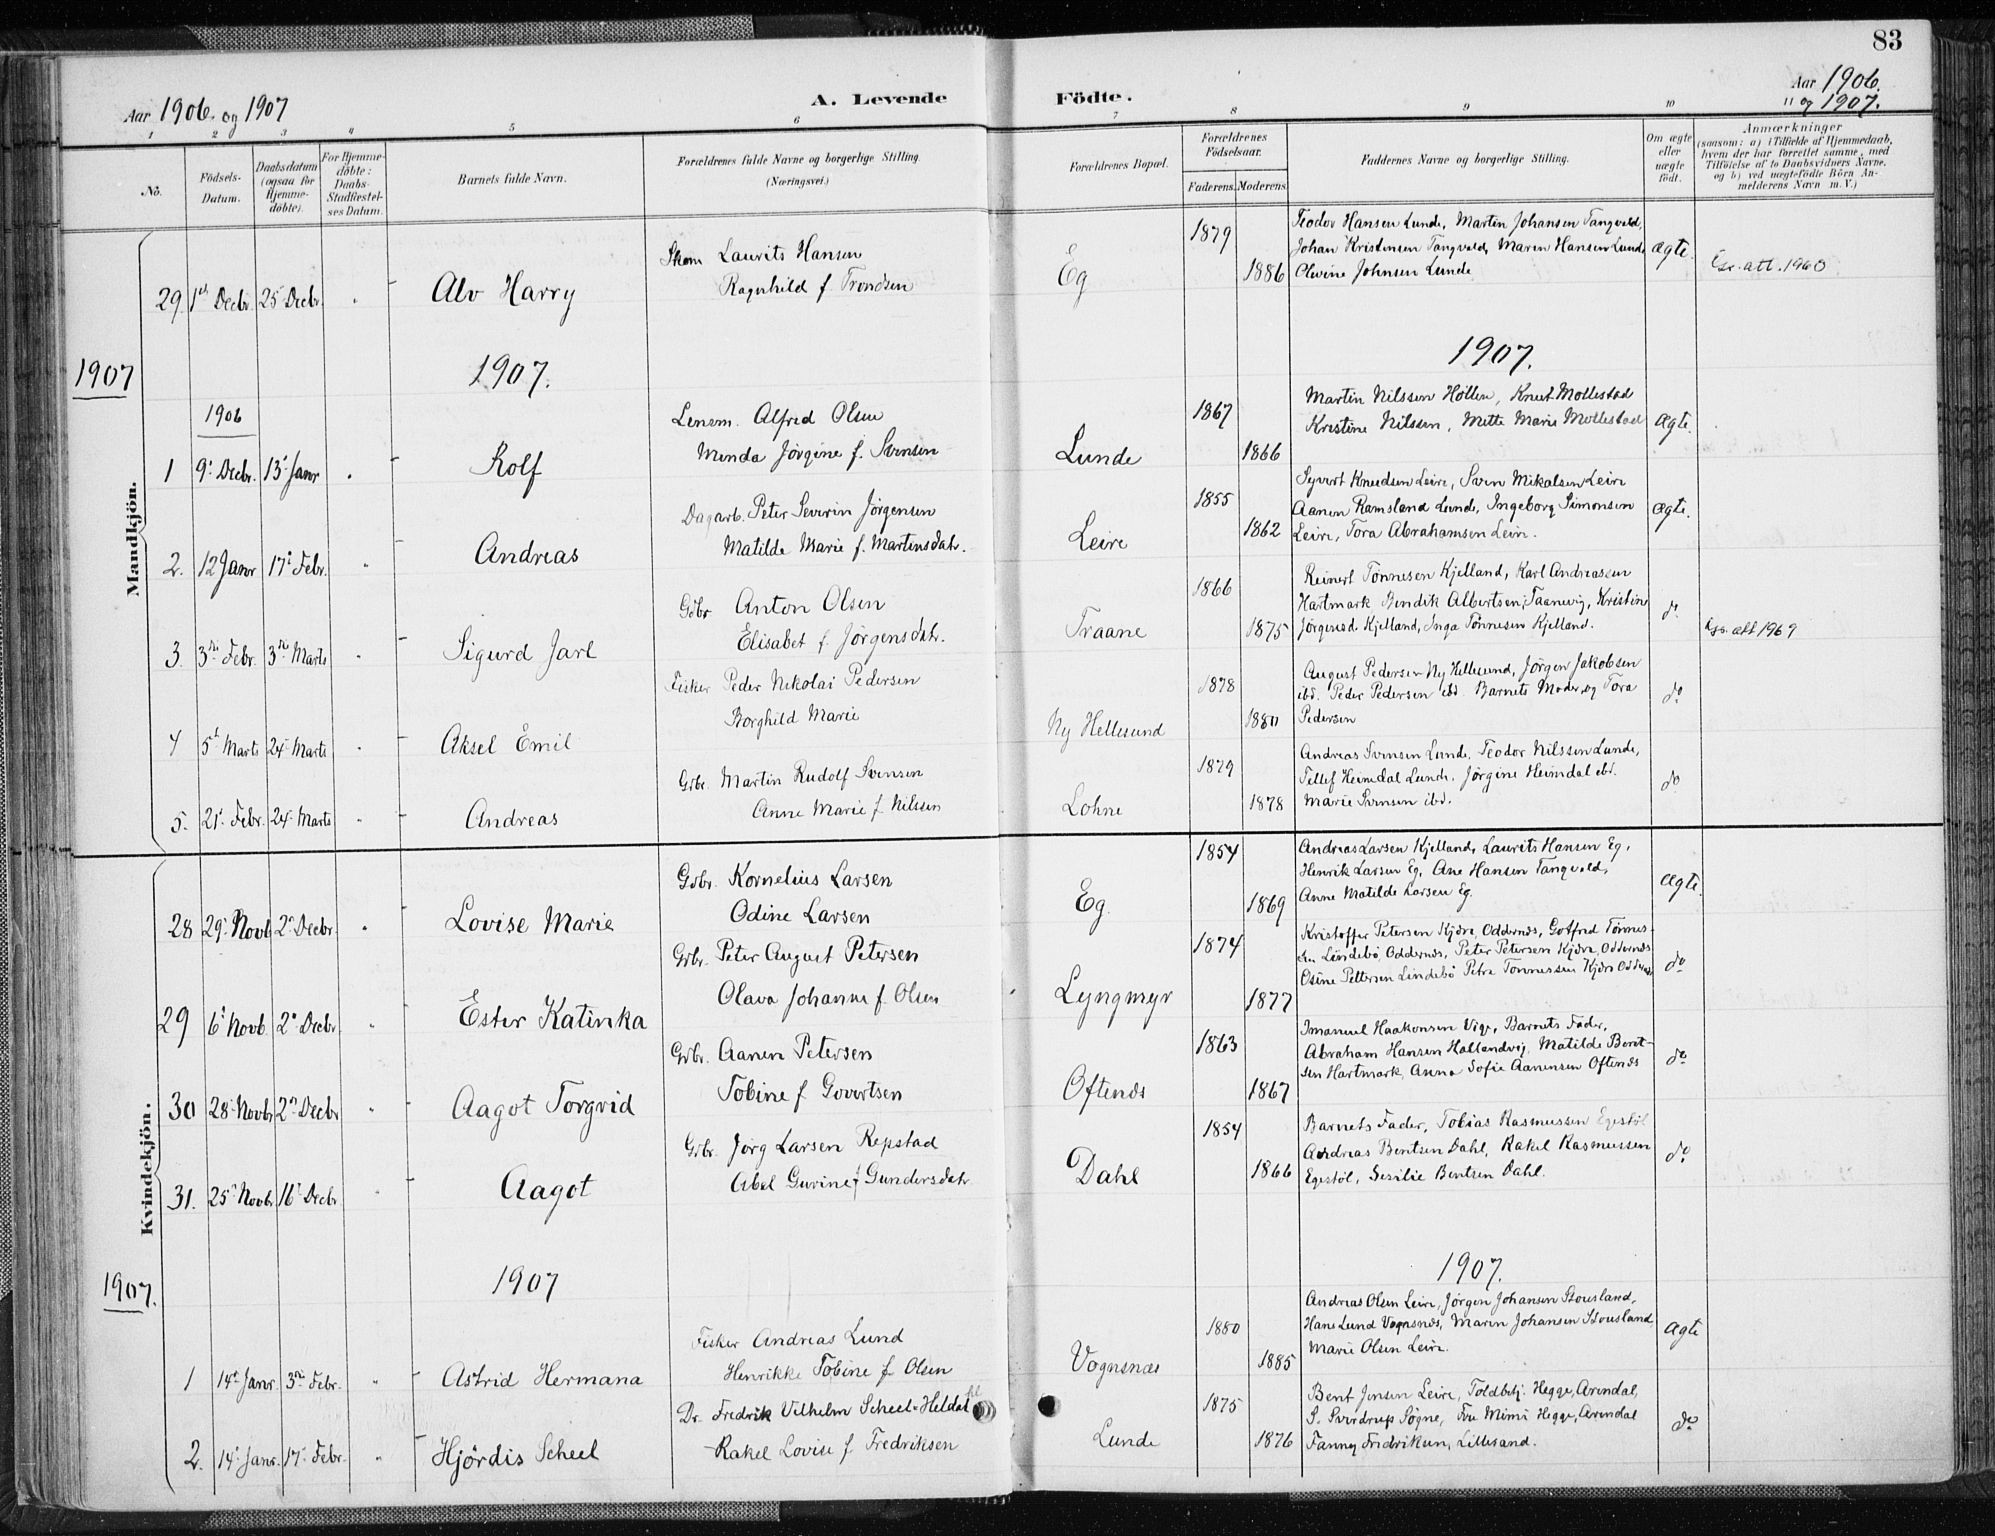 83
Aar 1906 og 1907
A. Levende Födte.
Aar 1906. og 1907.
1 2 3 4 5 6 7 8 9 10 11
No.
Födsels-Datum.
Daabsdatum (ogsaa for Hjemme-döbte).
For Hjemme-döbte: Daabs-Stadfæstel-ses Datum.
Barnets fulde Navn.
Forældrenes fulde Navne og borgerlige Stilling. (Næringsvei.)
Forældrenes Bopæl.
Forældrenes Födselsaar.
Faderens. Moderens.
Faddernes Navne og borgerlige Stilling.
Om ægte eller uægte födt.
Anmærkninger
(saasom: a) i Tilfælde af Hjemmedaab, hvem der har forrettet samme, med Tilföielse af to Daabsvidners Navne, og b) ved uægtefödte Börn An-melderens Navn m. V.)
Mandkjön.
29. 1 Decbr. 25 Decbr. Alv Harry
Skom Laurits Hansen
Ragnhild f. Trondsen
Eg 1879 1886
Teodor Hansen Lunde, Martin Johansen Tangvald,
Johan Kristensen Tangvald, Maren Hansen Lunde
Olevine Johnsen Lunde
ægte
att. 1960
1907
1907.
1907.
1906
1 9 Decbr. 13 Janr Rolf
Lensm. Alfred Olsen
Minda Jørgine f. Svensen
Lunde 1867 1866
Martin Nilssen Höllen, Knut Mollestad
Kristine Nilssen, Mette Marie Mollestad
ægte.
2. 12 Janr 17 Febr. Andreas
Dagarb. Peter Severin Jörgensen
Matilde Marie f. Martensdatr.
Leire 1855 1862
Syvert Knudsen Leire, Sven Mikalsen Leire
Aanen Ramsland Lunde, Ingeborg Simonsen
Leire, Tora Abrahamsen Leire.
ægte.
3. 3 Febr. 3 Marts Sigurd Jarl
Gbr Anton Olsen
Elisabet f. Jörgensdatr.
Traane 1866 1875
Reinert Tönnesen Kjelland, Karl Andreassen
Hartmark Bendik Albertsen, Taanevig, Kristine
Jörgensd. Kjelland, Inga Tönnesen Kjelland.
do
att 1969
4 5 Marts 24 Marts Aksel Emil
Fisker Peder Nikolai Pedersen
Borghild Marie
Ny Hellesund 1878 1880
August Pedersen Ny Hellesund, Jörgen Jakobsen
ibd. Peder Pedersen ibd Barnets Moder, og Tora
Pedersen
do
5. 21 Febr. 24 Marts Andreas
Grbr. Martin Rudolf Svensen
Anne Marie f. Nilssen
Lohne 1879 1878
Andreas Svensen Lunde, Teodor Nilssen Lunde,
Tellef Heimdal Lunde, Jörgine Heimdal ibd.
Marie Svensen ibd.
do
Kvindekjön.
28 29 Novb 2 Decbr. Lovise Marie
Grbr. Kornelius Larsen
Odine Larsen
Eg. 1854 1869
Andreas Larsen Kjelland, Laurits Hansen Eg,
Henrik Larsen Eg, Ane Hansen Tangvald,
Anne Matilde Larsen Eg.
ægte.
29 6 Novb. 2 Decbr Ester Katinka
Grbr. Peter August Petersen
Olava Johanne f. Olsen
Lyngmyr 1874 1877
Kristoffer Petersen Kjære, Oddernes, Gotfred Tönnes-
sen Lindebö, Oddernes, Peter Petersen Kjære, Oddernes
Osine Pettersen Lindebö Petra Tönnessen Kjære Oddernes
do
30 28 Novbr 2 Decbr Aagot Torgvid
Grbr. Aanen Petersen
Tobine f. Govertsen
Oftenes 1863 1867
Imanuel Haakonsen Vige, Barnets Fader,
Abraham Hansen Hallandvig, Matilde Berit-
sen Hartmark, Anna Sofie Aanensen Oftenes
do
31. 25 Novbr. 16 Decbr. Aagot
Grbr. Jörg Larsen Repstad
Abel Gurine f Gundersdatr.
Dahl 1854 1866
Barnets Fader, Tobias Rasmussen Egestöl
Andreas Bentsen Dahl, Rakel Rasmussen
Egestöl, Sesilie Bentsen Dahl.
do
1907.
1907
1907.
1 14 Janr. 3 Febr. Astrid Hermana
Fisker Andreas Lund
Henrikke Tobine f. Olsen
Vognsnæs 1880 1885
Andreas Olsen Leire, Jörgen Johansen Stousland,
Hans Lund Vognsnes, Maren Johansen Stousland
Marie Olsen Leire.
ægte
2. 14 Janr. 17 Febr. Hjördis Scheel
Dr. Fredrik Vilhelm Scheel-Heldal
Rakel Lovise f. Fredriksen
Lunde 1875 1876
Bent Jensen Leire, Toldbetj. Hegge, Arendal,
S. Sverdrup Søgne, Fru Mimi Hegge, Arendal
Fanny Fredriksen, Lillesand.
do